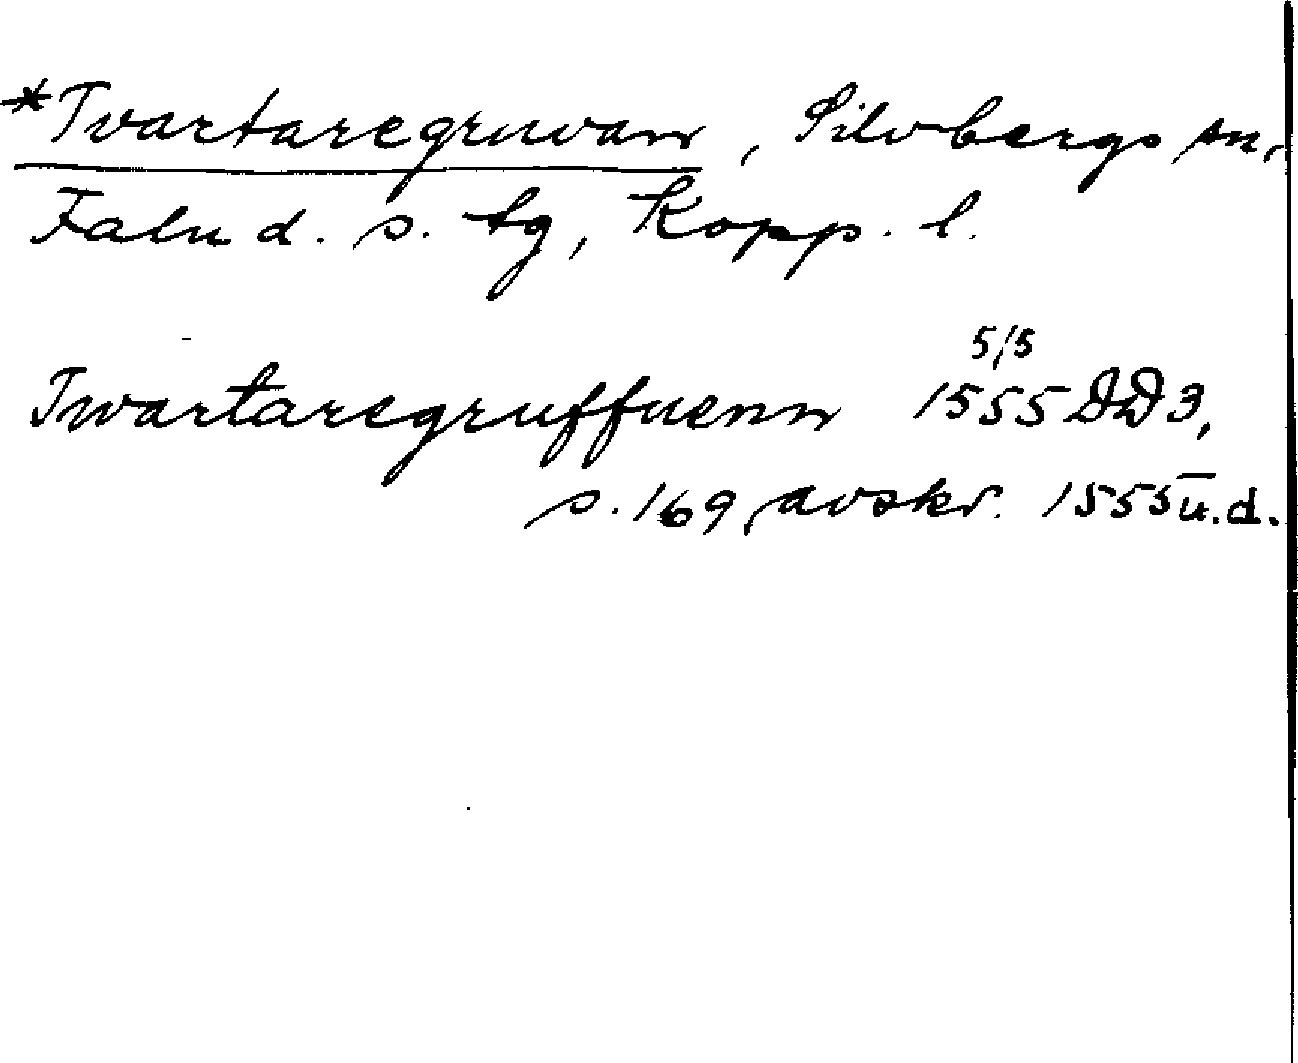 *Tvartaregruvan, Silvbergs sn,
Falu d. s. tg, Kopp. l.
Twartaregruffuenn 5/5 1555 DD 3,
s. 169, avskr. 1555 u. d.